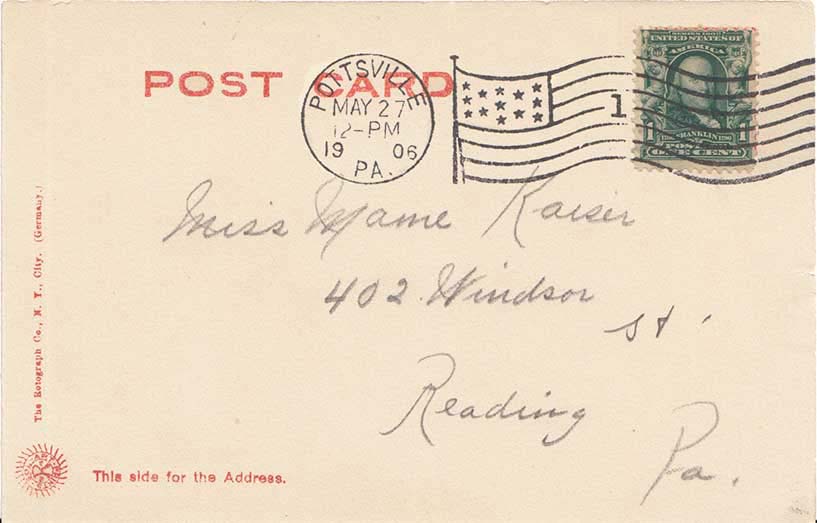 POST CARD
POTTSVILLE
MAY 27
12-PM
19 06
PA.
1
SERIES 1902
UNITED STATES OF
AMERICA
1 FRANKLIN 1
POSTAGE
ONE CENT
Miss Mame Kaiser
402 Windsor
st.
Reading
Pa.
The Rotograph Co., N. Y., City. (Germany.)
This side for the Address.